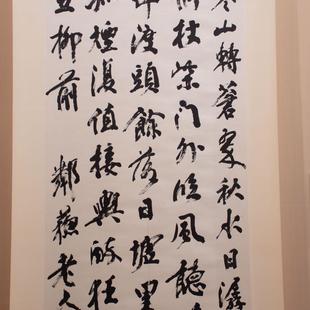 寒山轉蒼翠秋水日潺
倚杖柴門外臨風聽
蟬渡頭餘落日墟里
孤煙復值接輿醉狂
五柳前 鄰蘇老人